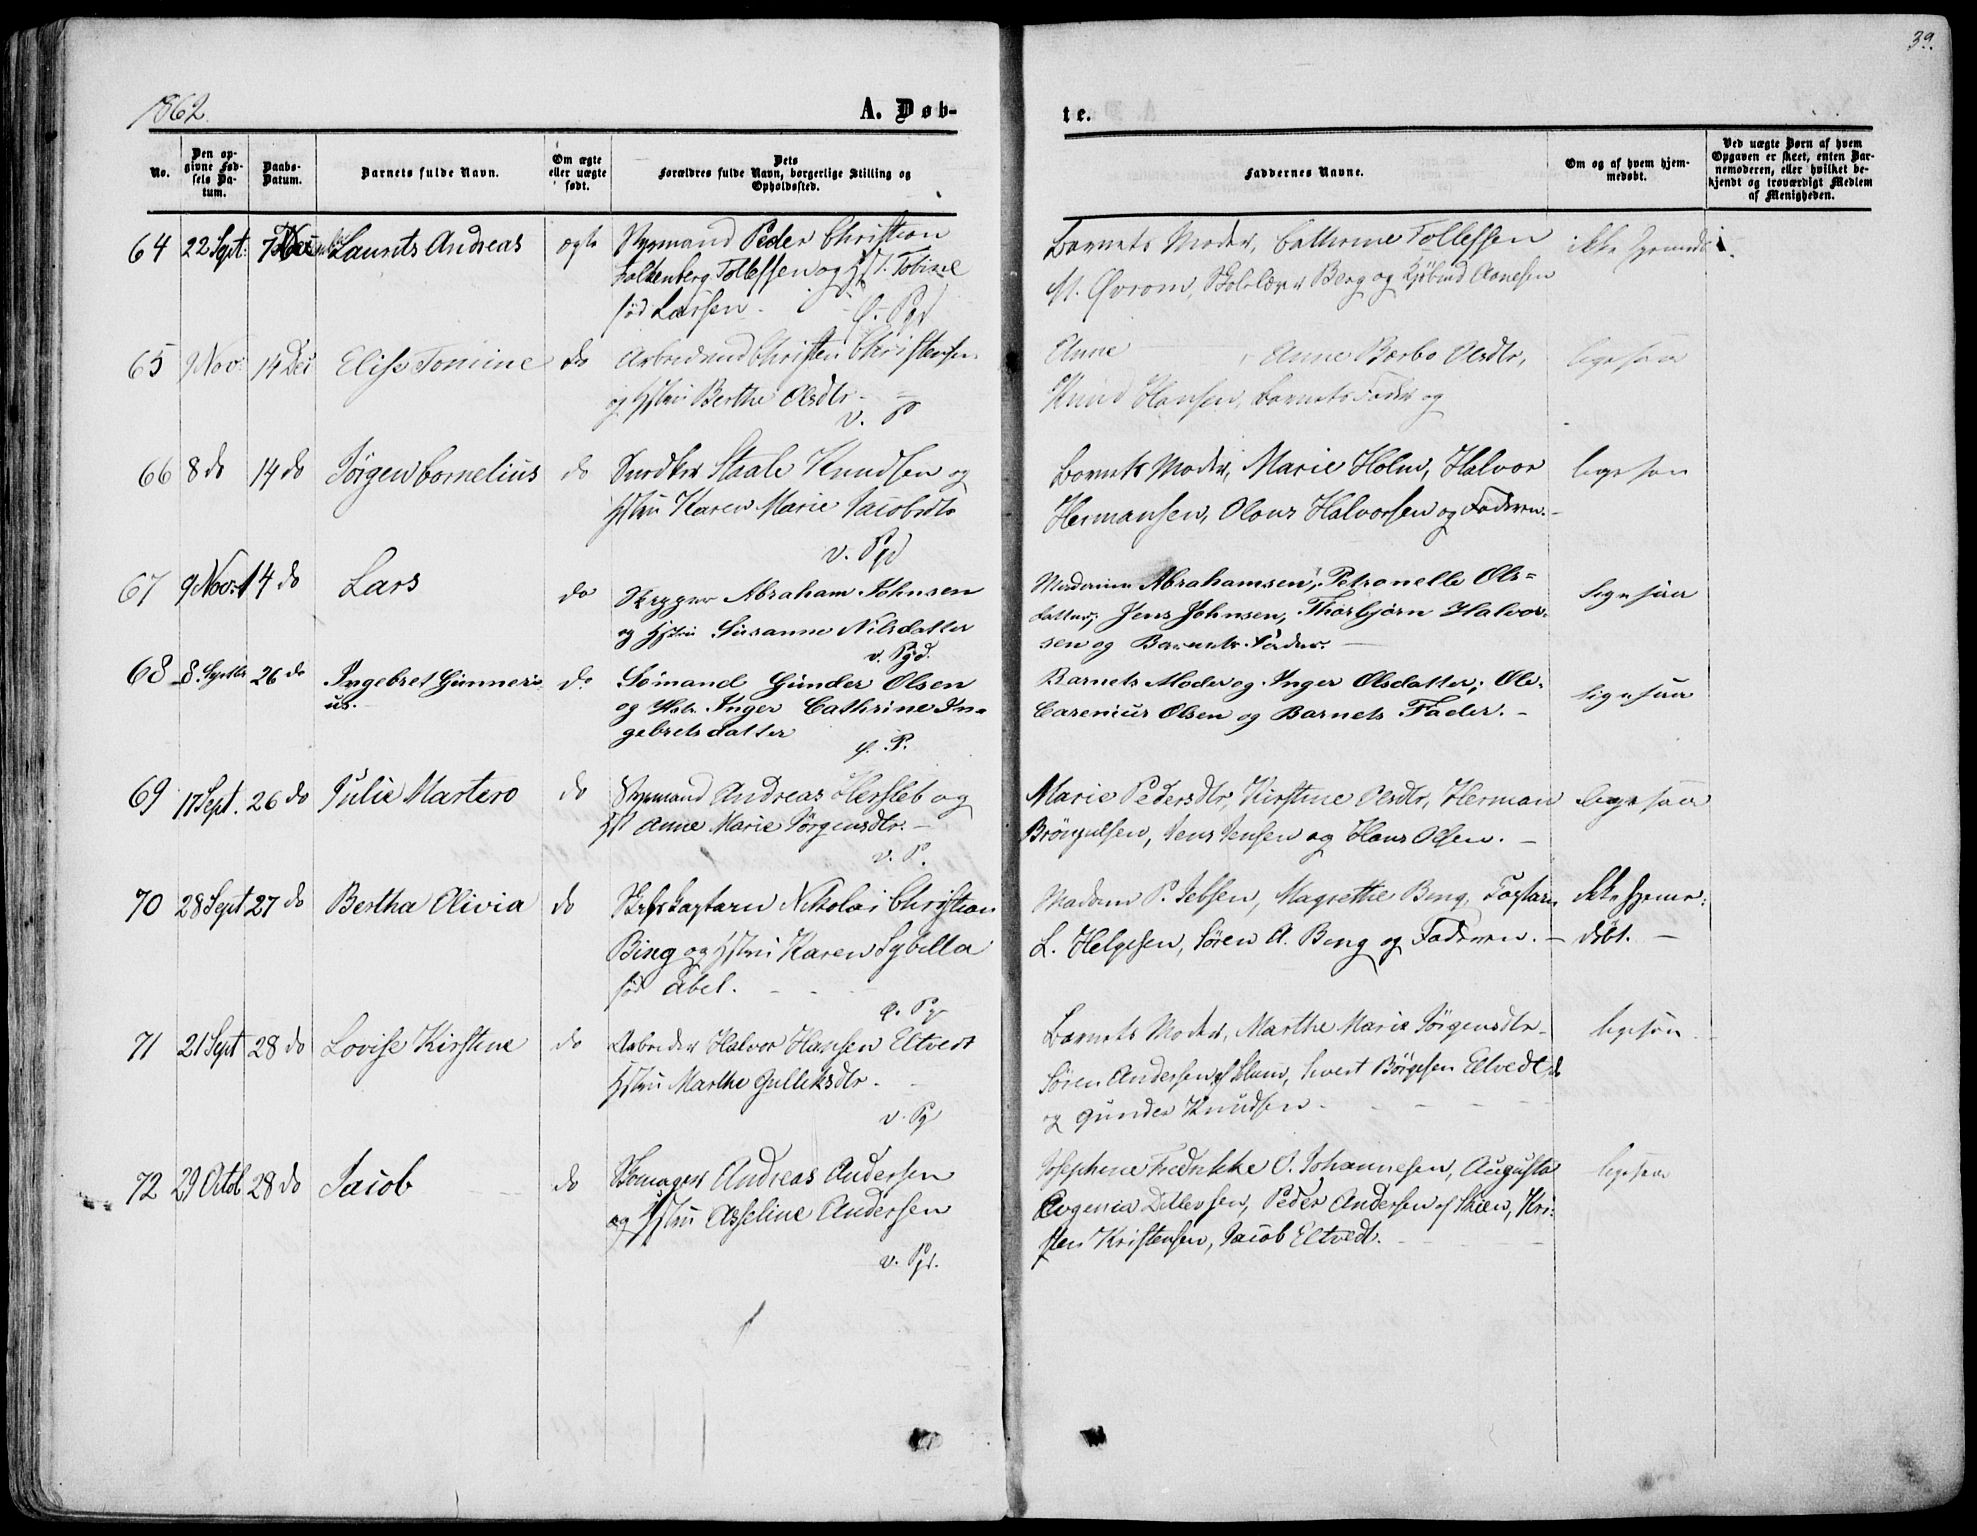 39.
1862.
A. Døb-
te.
No.
Den op-
givne Fød-
sels Da-
tum.
Daabs-
Datum.
Barnets fulde Navn.
Om ægte
eller uægte
født.
Dets
Forældres fulde Navn, borgerlige Stilling og
Opholdssted.
Faddernes Navne.
Om og af hvem hjem-
medøbt.
Ved uægte Børn af hvem
Opgaven er skeet, enten Bar-
nemoderen, eller hvilket be-
kjendt og troværdigt Medlem
af Menigheden.
64 22 Sept: 7 Laurits Andreas ægte Styrmand Peder Christian
Falkenberg Tollefsen og Tobine
fød Larsen.
Barnets Moder, Cathrine Tollefsen
M. Øvrom, Skolelærer Berg og Aanesen
ikke
65 9 Nov: 14 Dec Elise Tomine do Christen Christensen
og Hstru Berthe Olsdtr.
v. P
Anne Anne Barbo Olsdtr,
Knud Hansen, Barnets Fader og
ligesaa
66 8 do 14 do Jørgen Cornelius do Snedker Staale Knudsen og
Hstru Karen Marie Jacobsdtr
v. Pgd
Barnets Moder, Marie Holm, Halvor
Hermansen, Olaus Halvorsen og Faderen.
ligesaa
67 9 Nov: 14 do Lars do Skrypper Abraham Johnsen
og Hstru Susanne Nilsdatter
v. Pgd.
Abrahamsen, Petronelle Ols=
datter; Jens Johnsen, Thorbjørn Halvor-
sen og Barnets Fader.
ligesaa
68 8 Septbr 26 do Ingebret Gunneri-
us. do Sømand Gunder Olsen
og Hstr. Inger Cathrine In=
gebretsdatter
Barnets Moder og Inger Olsdatter; Ole
Carenius Olsen og Barnets Fader.
ligesaa
69 17 Sept. 26 do Julie Martero do Styrmand Andreas Hersleb og
Hst Anne Marie Jørgensdtr.
v. P.
Marie Pedersdtr, Kirstine Olsdtr, Herman
Brönjulsen, Jens Jensen og Hans Olsen.
ligesaa
70 28 Sept 27 do Bertha Olivia do Skibskaptain Nikolai Christian
Bing og Hstru Karen Sybilla
fød Abel.
Madam P. Jebsen, Magrethe Beng,
L. Helgesen, Søren A. Beng og Faderen.
Ikke hjeme-
døbt.
71 21 Sept 28 do Lovise Kirstine do Arbeider Halvor Hansen Eltvedt
Hstru Marthe Gulleksdtr.
v. Pg
Barnets Moder, Marthe Marie Jørgensdtr
Søren Andersen af Slum, Børgesen Eltvedt,
og Gunder Knudsen.
ligesaa
72 29 Octob 28 do Jacob do Skomager Andreas Andersen
og Hstru Asseline Andersen
v. Pgd.
Josephine Fredrikke O. Johannesen, Augusta
Eugenia Ditlevsen, Peder Andersen af Skien, Kri-
sten Kristensen, Jacob Eltvedt.
ligesaa